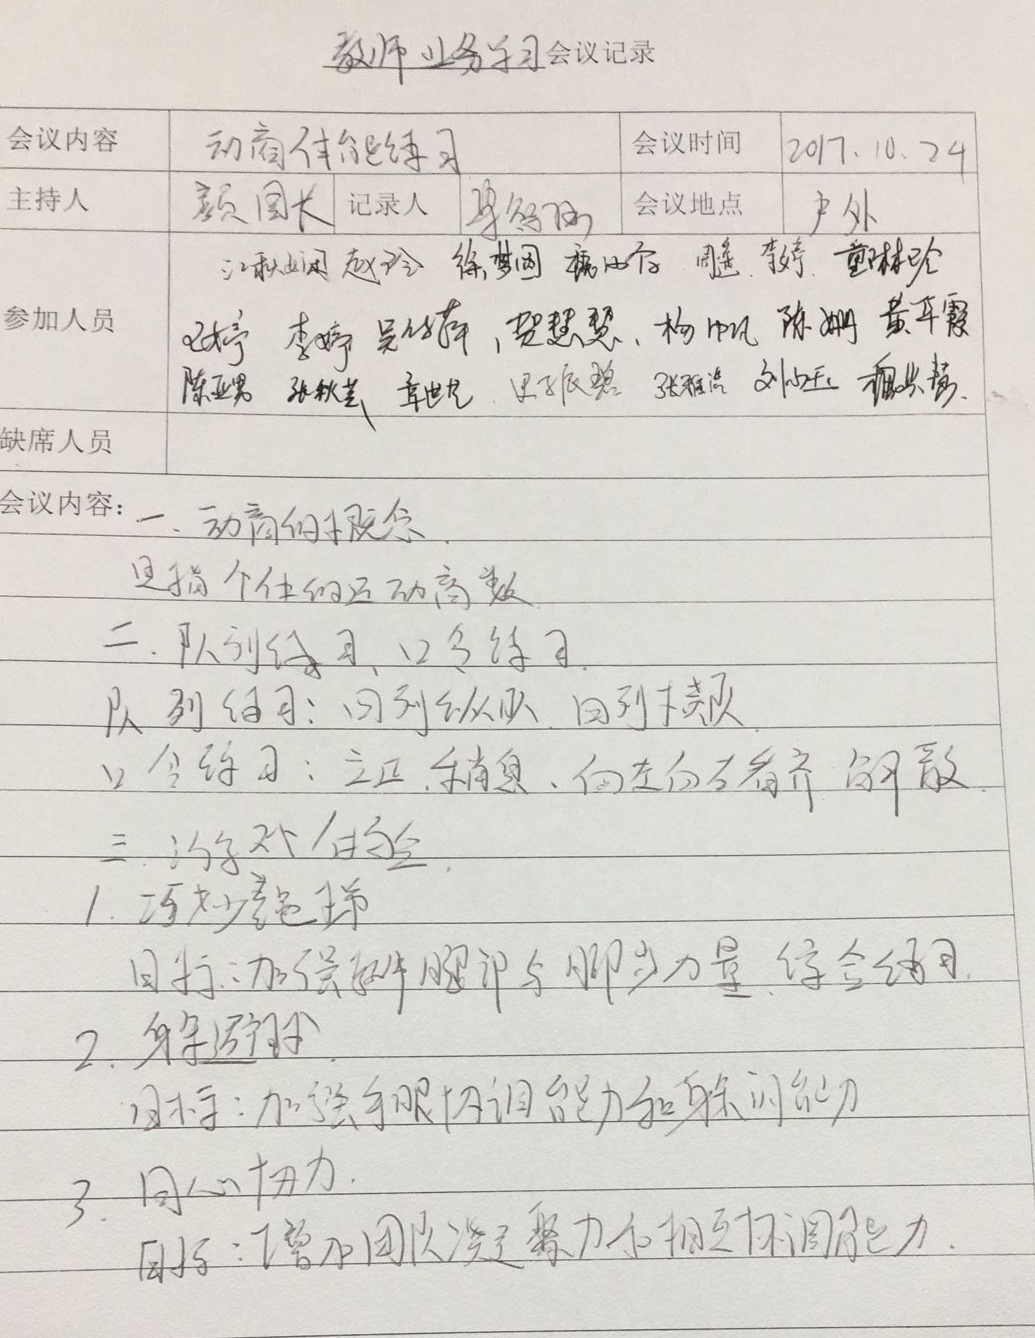 教师业务学习会议记录
会议内容 动商体能练习 会议时间 2017.10.24
主持人 颜园长 记录人 会议地点 户外
江秋娴 赵玲 徐梦园 周瑶 李婷 董琳玲
参加人员 李婷 吴 贺慧慧、杨帆 陈姗 黄翠霞
陈亚男 张秋芸 章世龙 张雅洁 刘小玉
缺席人员
会议内容：一、动商的概念.
是指个体的运动商数
二.队列练习、口令练习.
队列练习：四列纵队 四列横队
口令练习：立正.稍息、向左向右看齐 解散.
三.游戏体验.
1.
目标：加强 腿部与脚步力量 综合练习.
2.躲避球.
目标：加强手眼协调能力和躲闪能力
3.同心协力.
目标：增加团队凝聚力和相互协调能力.